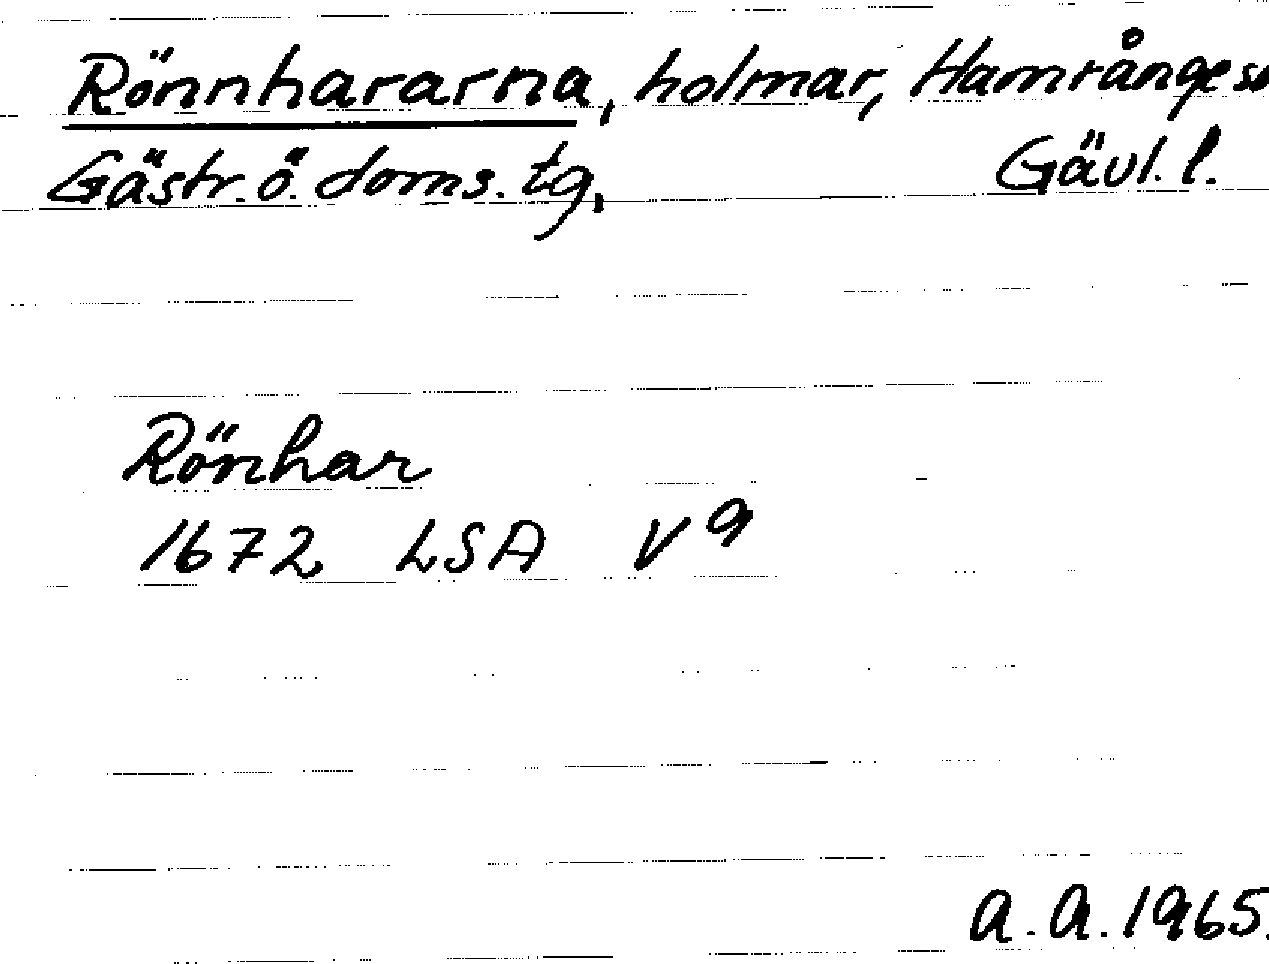 Rönnhararna, holmar, Hamrånge sn
Gästr. ö. doms. tg, Gävl. l.
Rönhar
1672 LSA V 9
A. A. 1965.